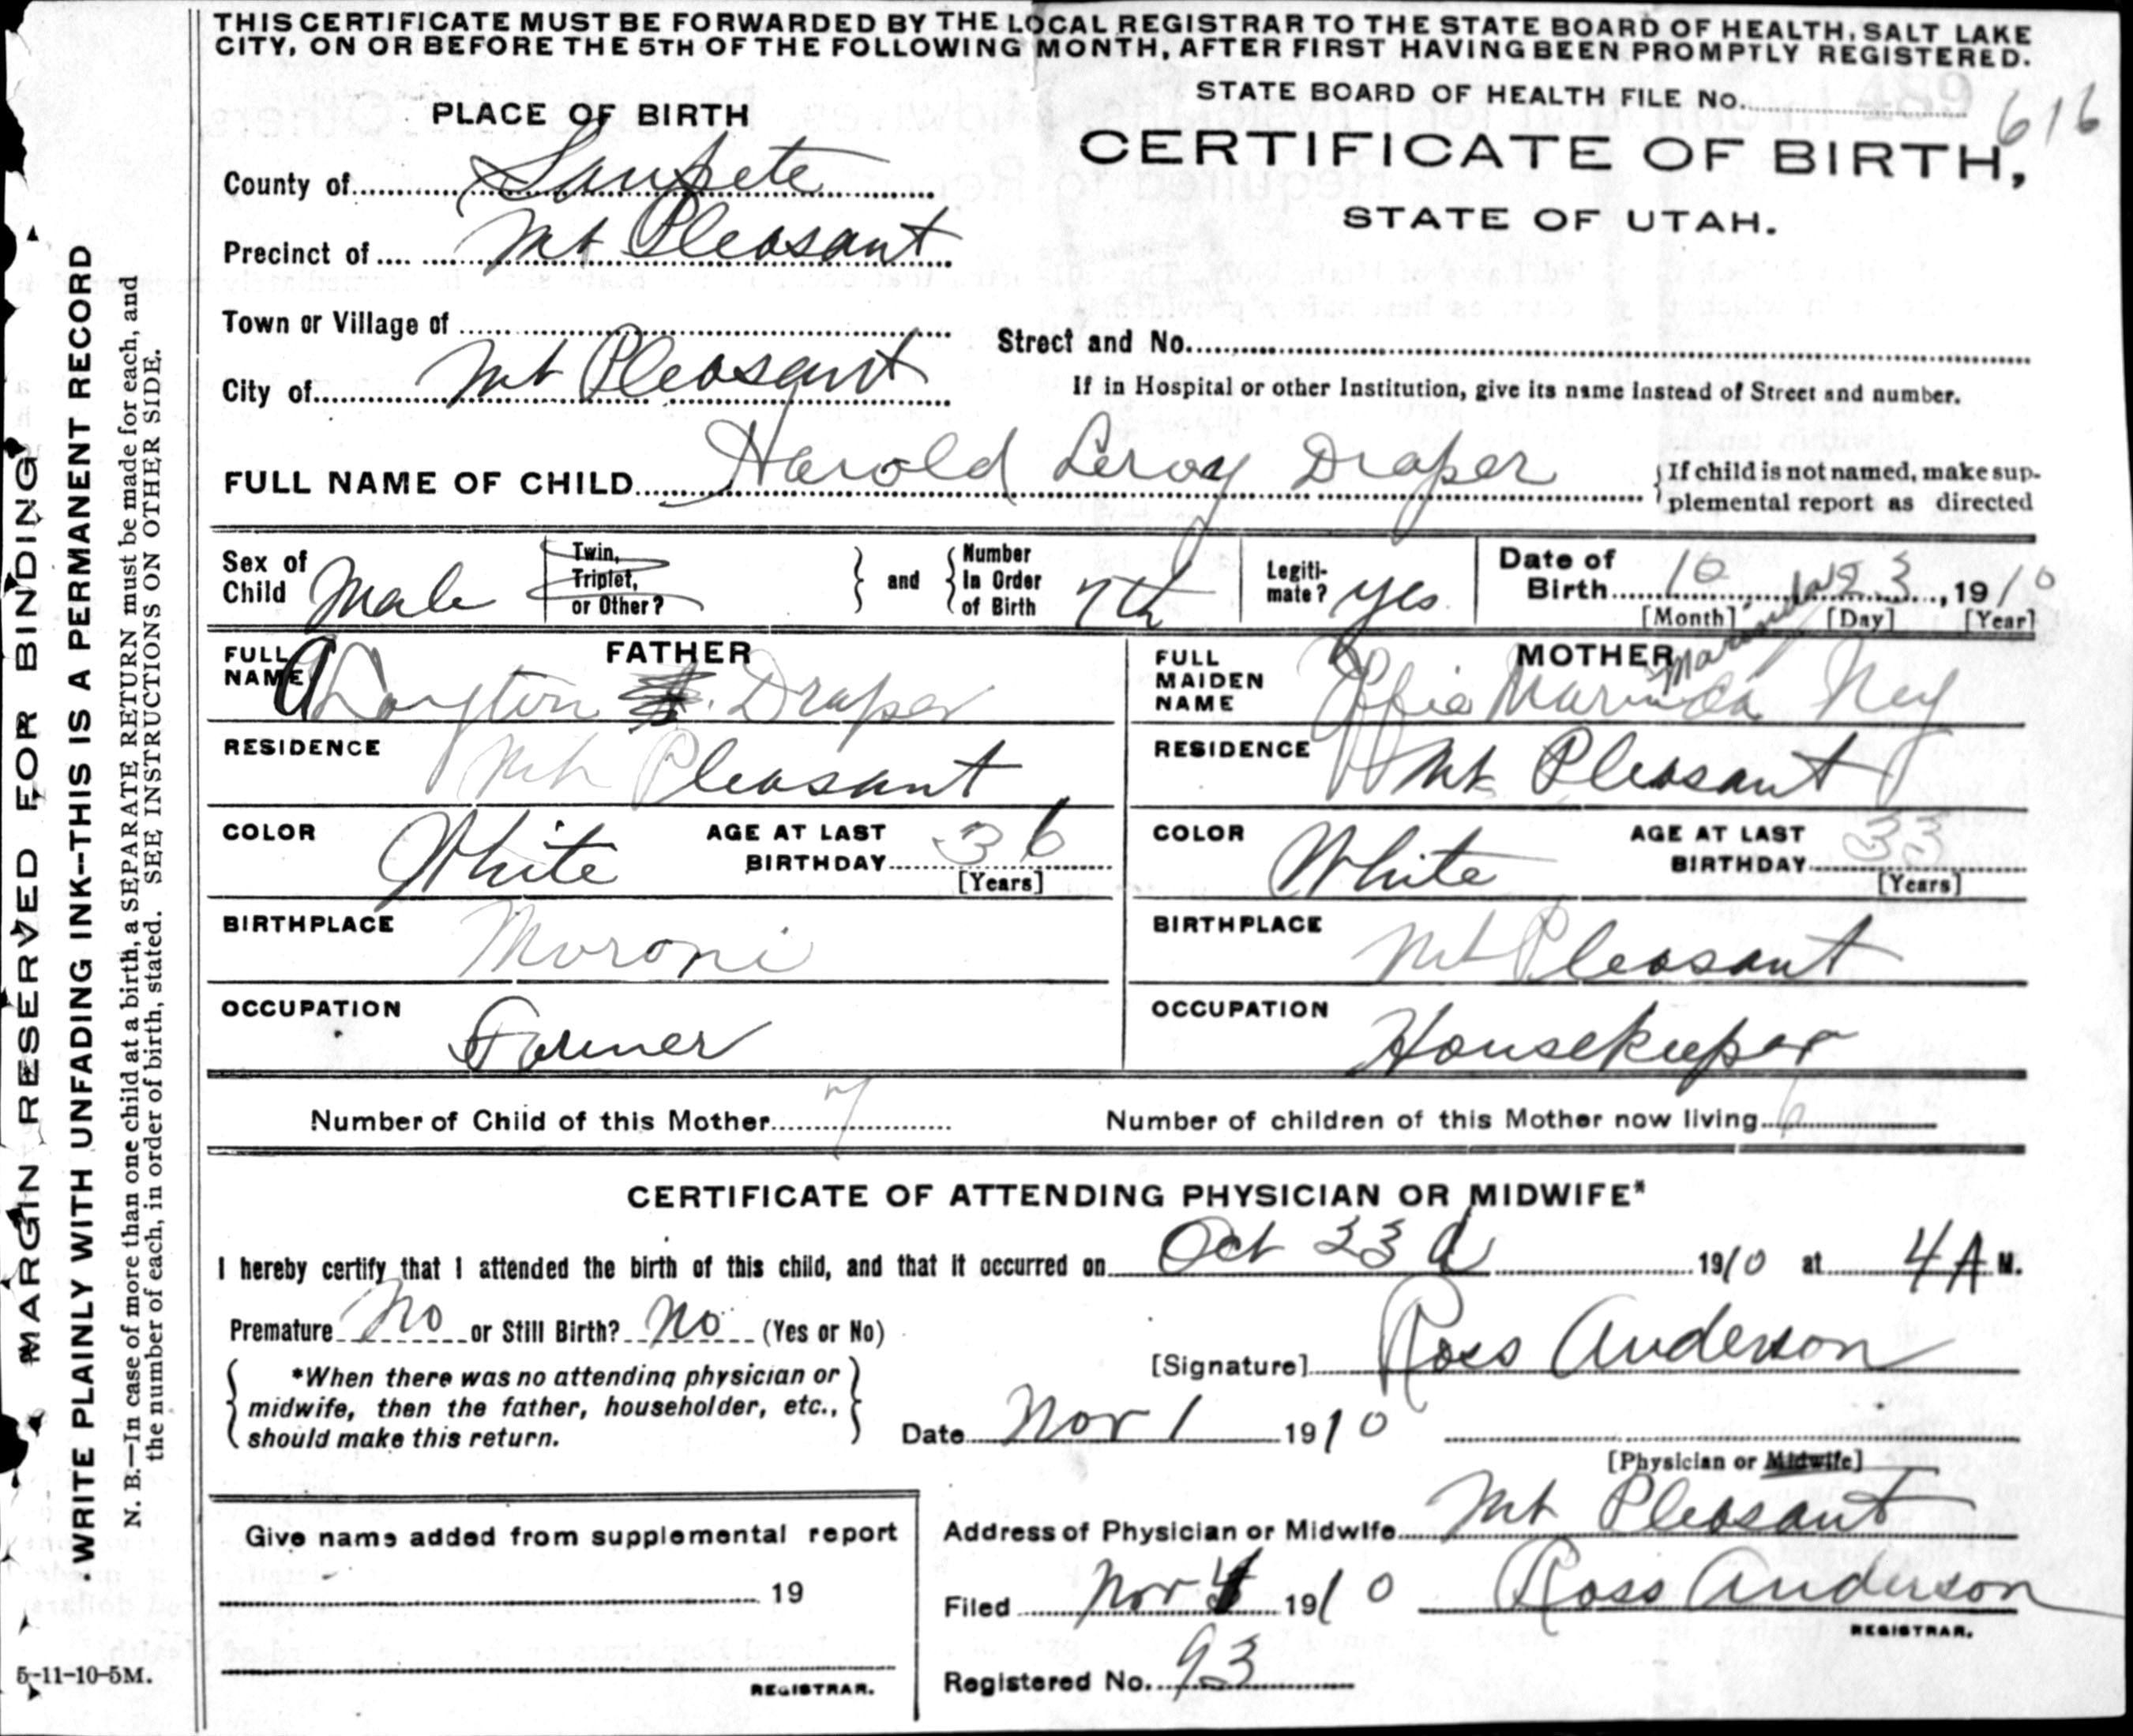 THIS CERTIFICATE MUST BE FORWARDED BY THE LOCAL REGISTRAR TO THE STATE BOARD OF HEALTH, SALT LAKE
CITY, ON OR BEFORE THE 5TH OF THE FOLLOWING MONTH, AFTER FIRST HAVING BEEN PROMPTLY REGISTERED.
STATE BOARD OF HEALTH FILE No. 489 616
PLACE OF BIRTH
CERTIFICATE OF BIRTH,
STATE OF UTAH.
County of Sanpete
Precinct of Mt Pleasant
Town or Village of
Street and No.
City of Mt Pleasant
If in Hospital or other Institution, give its name instead of Street and number.
FULL NAME OF CHILD Harold Leroy Draper
If child is not named, make sup-
plemental report as directed
Sex of Child Male
Twin, Triplet, or Other?
and
Number in Order of Birth 7th
Legiti-mate? yes
Date of Birth 10 23, 1910
[Month] [Day] [Year]
FATHER
FULL NAME Layton Draper
RESIDENCE Mt Pleasant
COLOR White AGE AT LAST BIRTHDAY 36
[Years]
BIRTHPLACE Moroni
OCCUPATION Farmer
MOTHER
FULL MAIDEN NAME Effie Marinda Ney
Marinda
RESIDENCE Mt Pleasant
COLOR White AGE AT LAST BIRTHDAY 33
[Years]
BIRTHPLACE Mt Pleasant
OCCUPATION Housekeeper
Number of Child of this Mother 7
Number of children of this Mother now living 6
CERTIFICATE OF ATTENDING PHYSICIAN OR MIDWIFE*
I hereby certify that I attended the birth of this child, and that it occurred on Oct 23 d 1910 at 4 A M.
Premature No or Still Birth? No (Yes or No)
*When there was no attending physician or
midwife, then the father, householder, etc.,
should make this return.
[Signature] Ross Anderson
Date Nov 1 1910
[Physician or Midwife]
Give name added from supplemental report
19
REGISTRAR.
Address of Physician or Midwife Mt Pleasant
Filed Nov 1910 Ross Anderson
REGISTRAR.
Registered No. 93
MARGIN RESERVED FOR BINDING
WRITE PLAINLY WITH UNFADING INK--THIS IS A PERMANENT RECORD
N. B.—In case of more than one child at a birth, a SEPARATE RETURN must be made for each, and
the number of each, in order of birth, stated. SEE INSTRUCTIONS ON OTHER SIDE.
5-11-10-5M.